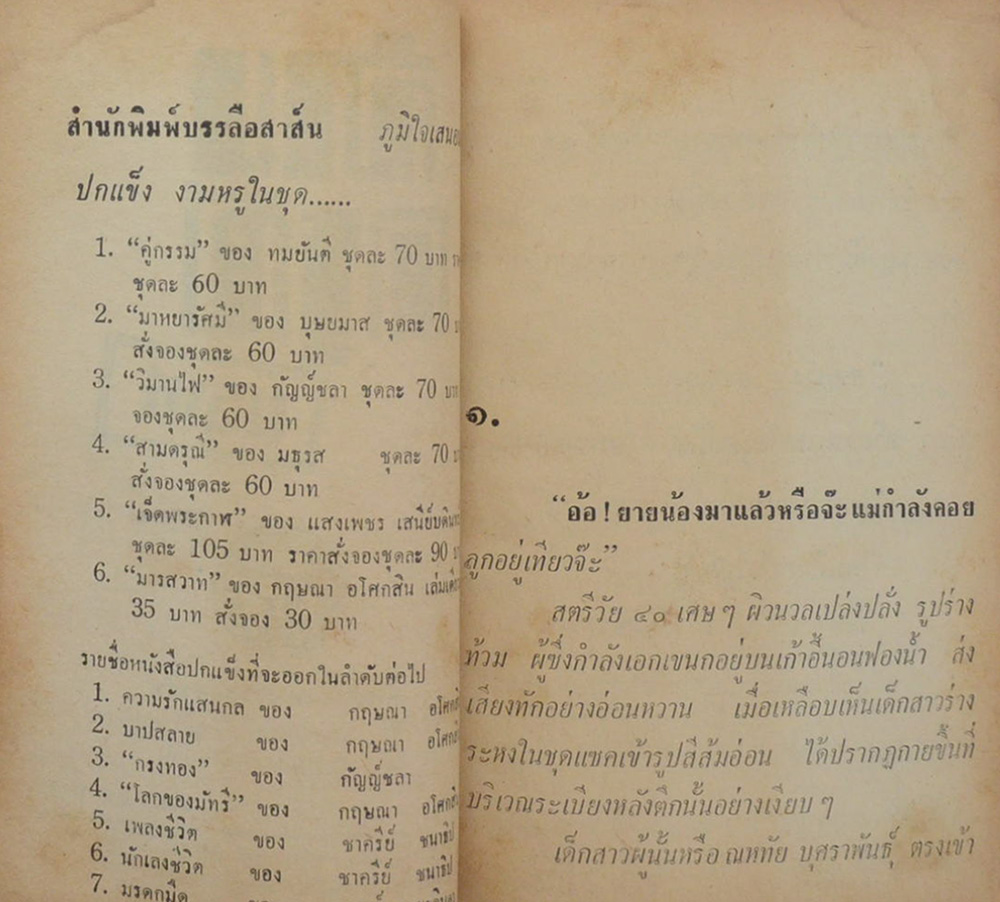 สำนักพิมพ์บรรลือสาส์น ภูมิใจเสนอ
ปกแข็ง งามหรูในชุด......
1. “คู่กรรม” ของ ทมยันตี ชุดละ 70 บาท
ชุดละ 60 บาท
2. “มาหยารัศมี” ของ บุษยมาส ชุดละ 70
สั่งจองชุดละ 60 บาท
3. “วิมานไฟ” ของ กัญญ์ชลา ชุดละ 70
จองชุดละ 60 บาท
4. “สามดรุณี” ของ มธุรส ชุดละ 70
สั่งจองชุดละ 60 บาท
5. “เจ็ดพระกาฬ” ของ แสงเพชร
ชุดละ 105 บาท ราคาสั่งจองชุดละ 90
6. “มารสวาท” ของ กฤษณา อโศกสิน
35 บาท สั่งจอง 30 บาท
รายชื่อหนังสือปกแข็งที่จะออกในลำดับต่อไป
1. ความรักแสนกล ของ กฤษณา
2. บาปสลาย ของ กฤษณา
3. “กรงทอง” ของ กัญญ์ชลา
4. “โลกของมัทรี” ของ กฤษณา
5. เพลงชีวิต ของ ชาครีย์ ชนาธิป
6. นักเลงชีวิต ของ ชาครีย์ ชนาธิป
7. มรดกมืด
๑.
“อ้อ ! ยายน้องมาแล้วหรือจ๊ะ แม่กำลังคอย
ลูกอยู่เทียวจ๊ะ”
สตรีวัย ๔๐ เศษ ๆ ผิวนวลเปล่งปลั่ง รูปร่าง
ท้วม ผู้ซึ่งกำลังเอกเขนกอยู่บนเก้าอี้นอนฟองน้ำ ส่ง
เสียงทักอย่างอ่อนหวาน เมื่อเหลือบเห็นเด็กสาวร่าง
ระหงในชุดแซคเข้ารูปสีส้มอ่อน ได้ปรากฏกายขึ้นที่
บริเวณระเบียงหลังตึกนั้นอย่างเงียบ ๆ
เด็กสาวผู้นั้นหรือ ณหทัย บุศราพันธุ์ ตรงเข้า